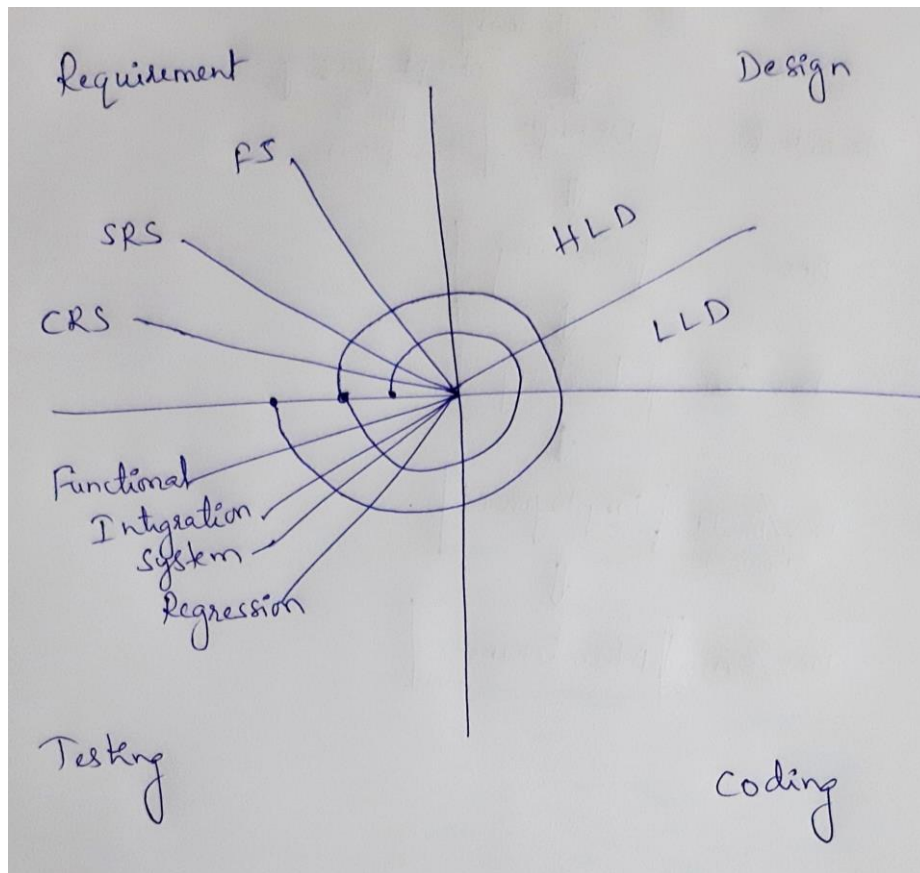 Requirement
Design
FS
HLD
SRS
LLD
CRS
Functional
Intigration
System
Regression
Testing
Coding